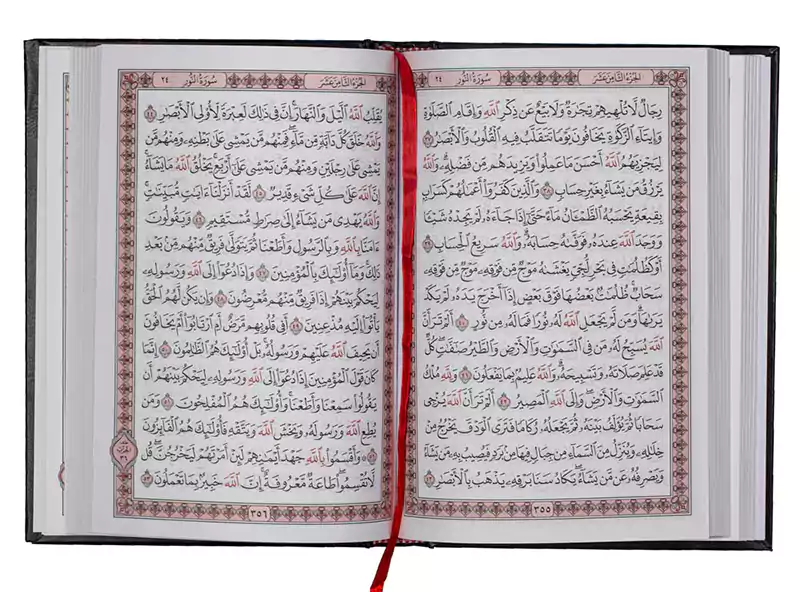 الجُزءُ الثَّامِن عَشَر سُورَةُ النُّور ٢٤
رِجَالٌ لَّا تُلْهِيهِمْ تِجَٰرَةٌ وَلَا بَيْعٌ عَن ذِكْرِ ٱللَّهِ وَإِقَامِ ٱلصَّلَوٰةِ
وَإِيتَآءِ ٱلزَّكَوٰةِ يَخَافُونَ يَوْمًا تَتَقَلَّبُ فِيهِ ٱلْقُلُوبُ وَٱلْأَبْصَٰرُ ٣٧
لِيَجْزِيَهُمُ ٱللَّهُ أَحْسَنَ مَا عَمِلُوا۟ وَيَزِيدَهُم مِّن فَضْلِهِۦ وَٱللَّهُ
يَرْزُقُ مَن يَشَآءُ بِغَيْرِ حِسَابٍ ٣٨ وَٱلَّذِينَ كَفَرُوٓا۟ أَعْمَٰلُهُمْ كَسَرَابٍۭ
بِقِيعَةٍ يَحْسَبُهُ ٱلظَّمْـَٔانُ مَآءً حَتَّىٰٓ إِذَا جَآءَهُۥ لَمْ يَجِدْهُ شَيْـًٔا
وَوَجَدَ ٱللَّهَ عِندَهُۥ فَوَفَّىٰهُ حِسَابَهُۥ وَٱللَّهُ سَرِيعُ ٱلْحِسَابِ ٣٩
أَوْ كَظُلُمَٰتٍ فِى بَحْرٍ لُّجِّىٍّ يَغْشَىٰهُ مَوْجٌ مِّن فَوْقِهِۦ مَوْجٌ مِّن فَوْقِهِۦ
سَحَابٌ ظُلُمَٰتٌۢ بَعْضُهَا فَوْقَ بَعْضٍ إِذَآ أَخْرَجَ يَدَهُۥ لَمْ يَكَدْ
يَرَىٰهَا وَمَن لَّمْ يَجْعَلِ ٱللَّهُ لَهُۥ نُورًا فَمَا لَهُۥ مِن نُّورٍ ٤٠ أَلَمْ تَرَ أَنَّ
ٱللَّهَ يُسَبِّحُ لَهُۥ مَن فِى ٱلسَّمَٰوَٰتِ وَٱلْأَرْضِ وَٱلطَّيْرُ صَٰٓفَّٰتٍ كُلٌّ
قَدْ عَلِمَ صَلَاتَهُۥ وَتَسْبِيحَهُۥ وَٱللَّهُ عَلِيمٌۢ بِمَا يَفْعَلُونَ ٤١ وَلِلَّهِ مُلْكُ
ٱلسَّمَٰوَٰتِ وَٱلْأَرْضِ وَإِلَى ٱللَّهِ ٱلْمَصِيرُ ٤٢ أَلَمْ تَرَ أَنَّ ٱللَّهَ يُزْجِى
سَحَابًا ثُمَّ يُؤَلِّفُ بَيْنَهُۥ ثُمَّ يَجْعَلُهُۥ رُكَامًا فَتَرَى ٱلْوَدْقَ يَخْرُجُ مِنْ
خِلَٰلِهِۦ وَيُنَزِّلُ مِنَ ٱلسَّمَآءِ مِن جِبَالٍ فِيهَا مِنۢ بَرَدٍ فَيُصِيبُ بِهِۦ مَن يَشَآءُ
وَيَصْرِفُهُۥ عَن مَّن يَشَآءُ يَكَادُ سَنَا بَرْقِهِۦ يَذْهَبُ بِٱلْأَبْصَٰرِ ٤٣
٣٥٥
الجُزءُ الثَّامِن عَشَر سُورَةُ النُّور ٢٤
يُقَلِّبُ ٱللَّهُ ٱلَّيْلَ وَٱلنَّهَارَ إِنَّ فِى ذَٰلِكَ لَعِبْرَةً لِّأُو۟لِى ٱلْأَبْصَٰرِ ٤٤
وَٱللَّهُ خَلَقَ كُلَّ دَآبَّةٍ مِّن مَّآءٍ فَمِنْهُم مَّن يَمْشِى عَلَىٰ بَطْنِهِۦ وَمِنْهُم مَّن
يَمْشِى عَلَىٰ رِجْلَيْنِ وَمِنْهُم مَّن يَمْشِى عَلَىٰٓ أَرْبَعٍ يَخْلُقُ ٱللَّهُ مَا يَشَآءُ
إِنَّ ٱللَّهَ عَلَىٰ كُلِّ شَىْءٍ قَدِيرٌ ٤٥ لَّقَدْ أَنزَلْنَآ ءَايَٰتٍ مُّبَيِّنَٰتٍ
وَٱللَّهُ يَهْدِى مَن يَشَآءُ إِلَىٰ صِرَٰطٍ مُّسْتَقِيمٍ ٤٦ وَيَقُولُونَ
ءَامَنَّا بِٱللَّهِ وَبِٱلرَّسُولِ وَأَطَعْنَا ثُمَّ يَتَوَلَّىٰ فَرِيقٌ مِّنْهُم مِّنۢ بَعْدِ
ذَٰلِكَ وَمَآ أُو۟لَٰٓئِكَ بِٱلْمُؤْمِنِينَ ٤٧ وَإِذَا دُعُوٓا۟ إِلَى ٱللَّهِ وَرَسُولِهِۦ
لِيَحْكُمَ بَيْنَهُمْ إِذَا فَرِيقٌ مِّنْهُم مُّعْرِضُونَ ٤٨ وَإِن يَكُن لَّهُمُ ٱلْحَقُّ
يَأْتُوٓا۟ إِلَيْهِ مُذْعِنِينَ ٤٩ أَفِى قُلُوبِهِم مَّرَضٌ أَمِ ٱرْتَابُوٓا۟ أَمْ يَخَافُونَ
أَن يَحِيفَ ٱللَّهُ عَلَيْهِمْ وَرَسُولُهُۥ بَلْ أُو۟لَٰٓئِكَ هُمُ ٱلظَّٰلِمُونَ ٥٠ إِنَّمَا
كَانَ قَوْلَ ٱلْمُؤْمِنِينَ إِذَا دُعُوٓا۟ إِلَى ٱللَّهِ وَرَسُولِهِۦ لِيَحْكُمَ بَيْنَهُمْ أَن
يَقُولُوا۟ سَمِعْنَا وَأَطَعْنَا وَأُو۟لَٰٓئِكَ هُمُ ٱلْمُفْلِحُونَ ٥١ وَمَن
يُطِعِ ٱللَّهَ وَرَسُولَهُۥ وَيَخْشَ ٱللَّهَ وَيَتَّقْهِ فَأُو۟لَٰٓئِكَ هُمُ ٱلْفَآئِزُونَ
٥٢ وَأَقْسَمُوا۟ بِٱللَّهِ جَهْدَ أَيْمَٰنِهِمْ لَئِنْ أَمَرْتَهُمْ لَيَخْرُجُنَّ قُل
لَّا تُقْسِمُوا۟ طَاعَةٌ مَّعْرُوفَةٌ إِنَّ ٱللَّهَ خَبِيرٌۢ بِمَا تَعْمَلُونَ ٥٣
الحزب
٣٦
٣٥٦